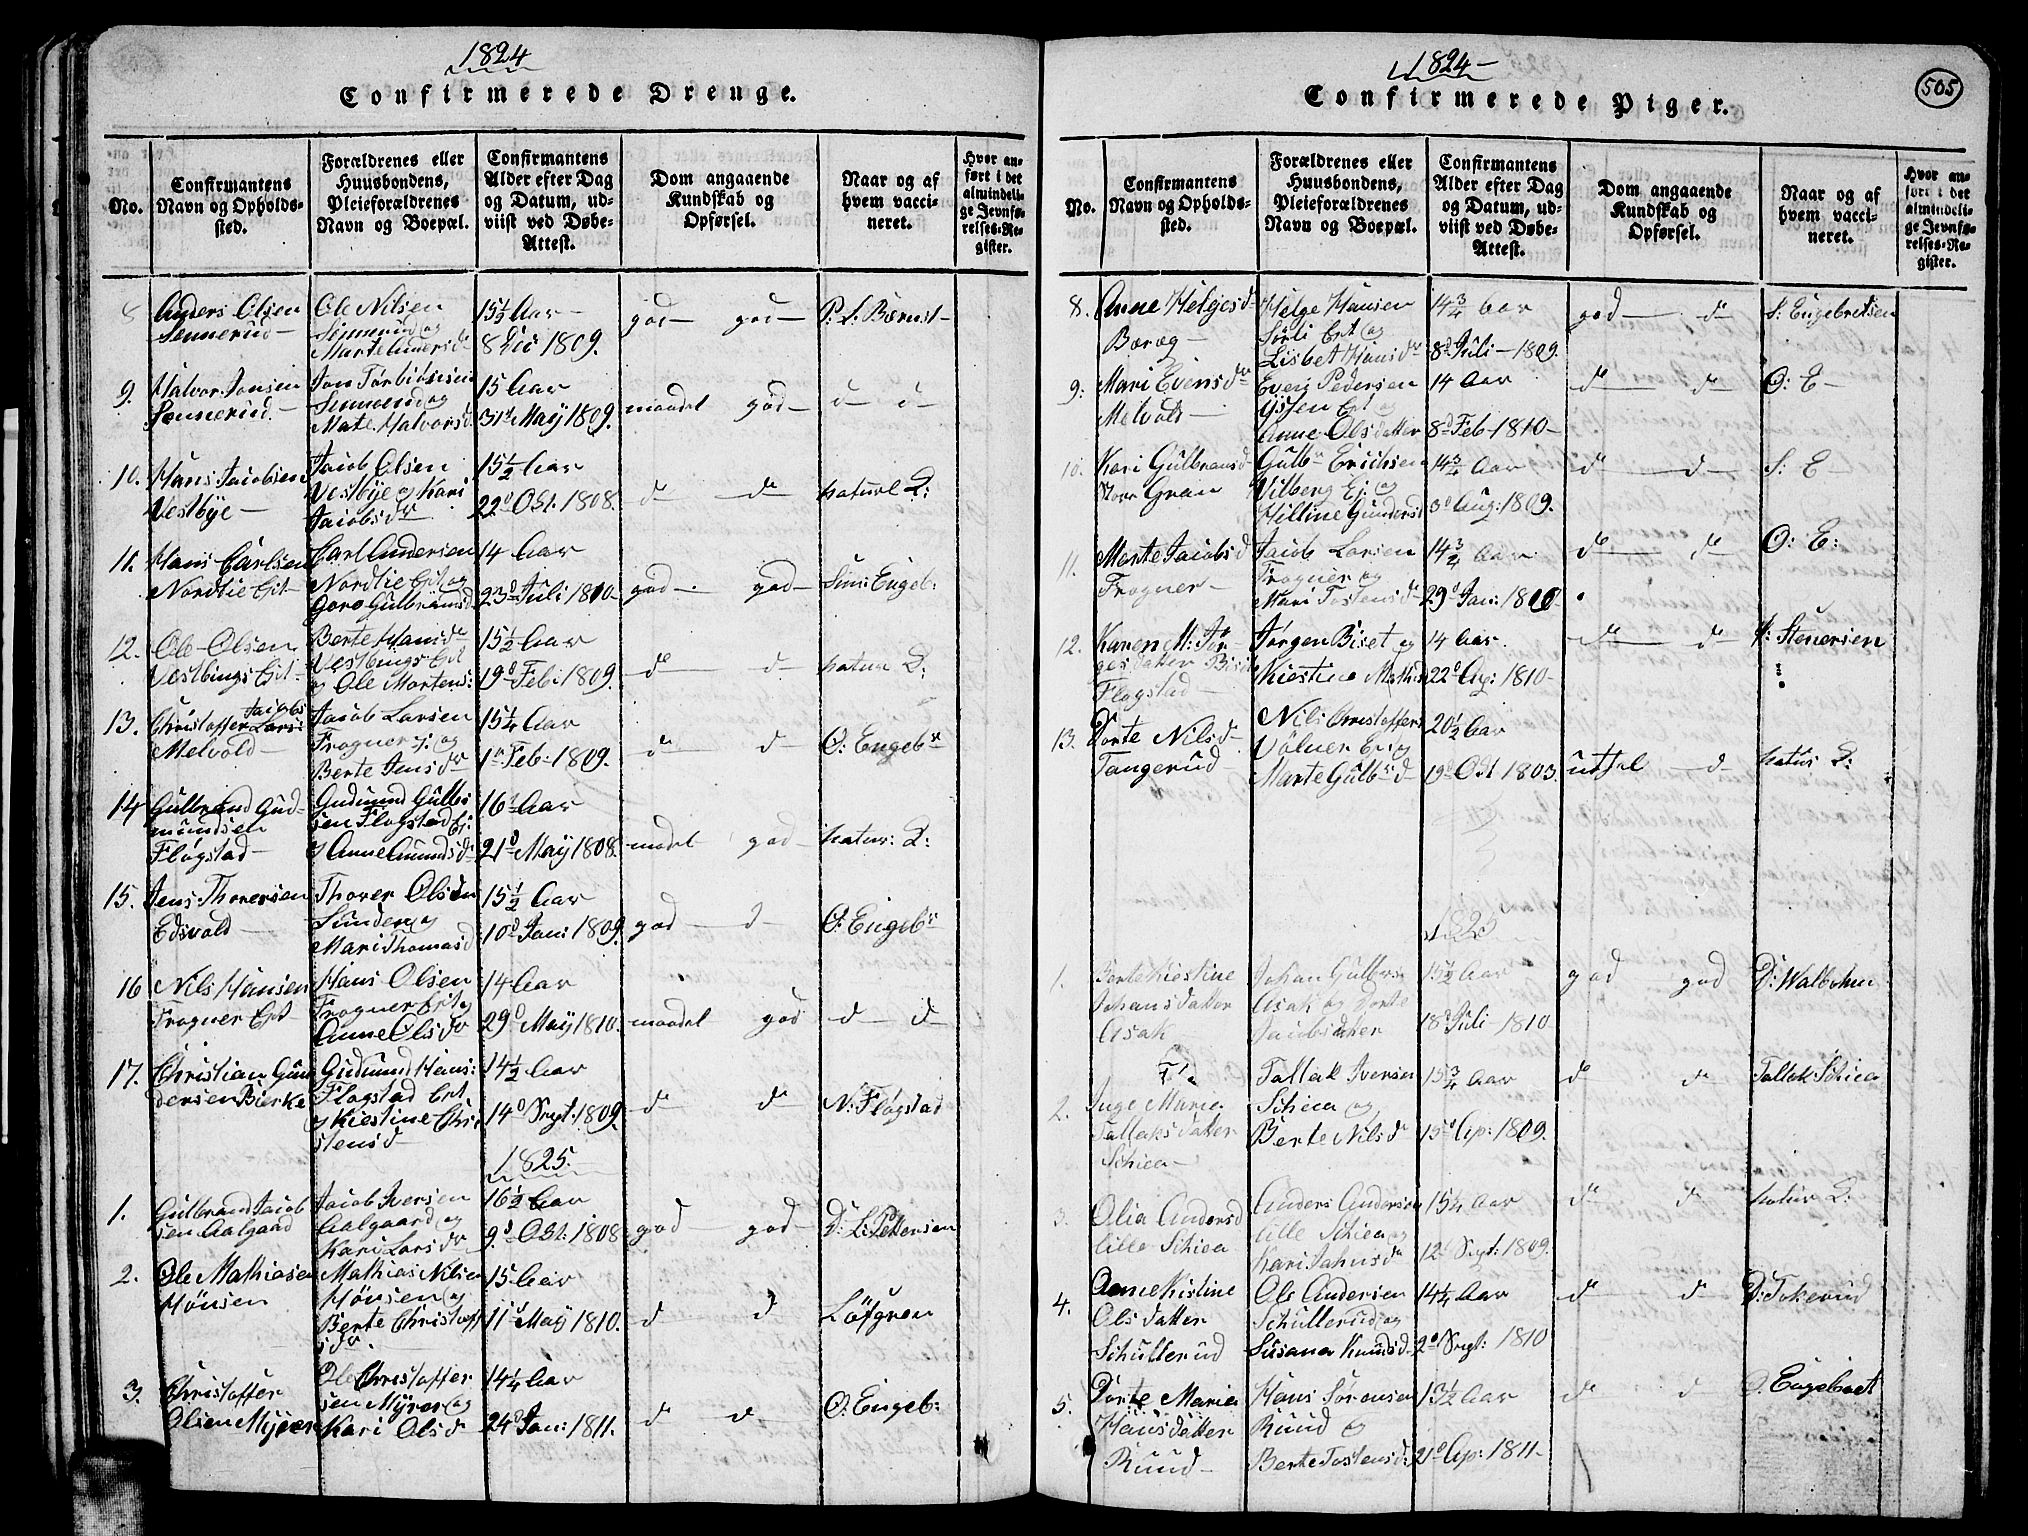 1824
Confirmerede Drenge.
No.
Confirmantens
Navn og Opholds-
sted.
Forældrenes eller
Huusbondens,
Pleieforældrenes
Navn og Boepæl.
Confirmantens
Alder efter Dag
og Datum, ud-
viist ved Døbe-
Attest.
Dom angaaende
Kundskab og
Opførsel.
Naar og af
hvem vacci-
neret.
Hvor an-
ført i det
almindeli-
ge Jevnfø-
relses-Re-
gister.
8
Anders Olsen
Sennerud
Ole Nilsen
Sinnerud og
Marte Andersdr
15 1/2 Aar
8 Dec 1809.
god god
P. L. Børnst
9.
Halvor Jonsen
Sennerud
Jon Torbiösen
Sinnerud og
Mate Halvorsd
15 Aar
31te Maÿ 1809.
maadel god
d d
10.
Hans Jacobsen
Vestbÿe
Jacob Olsen
Vestbÿe og Kari
Jacobsdr
15 1/2 Aar
22d Oct. 1808.
d d
naturl
11.
Hans Carlsen
Nordlie Eit
Carl Andersen
Nordlie Eit og
Goro Gulbransd
14 Aar
23d Juli 1810
god god
Sim: Engel:
12.
Ole Olsen
Vestbings Eit
Berte Hansdr
Vestbings Eit
og Ole Mortens:
15 1/2 Aar
19d Feb: 1809.
d d
natur
13.
Christoffer Jacobs
Lars:
Melvold
Jacob Larsen
Frogner Ej. og
Berte Jensdr
15 1/4 Aar
1te Feb: 1809.
d d
O: Engebr
14
Gulbrand Gud-
mundsen
Flögstad
Gudmund Gulbr
sen Flogstad Ej:
og Anne Amundsdr
16 Aar
21d Maÿ 1808.
madel god
natur:
15.
Jens Thorersen
Edsvold
Thorer Olsen
Sunder og
Mari Thomasd
15 1/2 Aar
10d Jan: 1809.
god d
O: Engebr
16
Nils Hansen
Frogner Eit
Hans Olsen
Frogner Eit og
Anne Olsdr
14 Aar
29d Maÿ 1810.
maadel god
d d
17.
Christian Gun
dersen Bierke
Gudmund Hans:
Flogstad Eit
og Kiestine Chri
stensd
14 1/2 Aar
14d Sept: 1809.
d d
N: Flögstad
1825.
1.
Gulbrand Jacob
sen Aalgaard
Jacob Iversen
Aalgaard og
Kari Larsdr
16 1/2 Aar
9d Oct: 1808
god god
D: L: Pettersen
2.
Ole Mathiasen
Hönsen
Mathias Nilsen
Hönsen og
Berte Christoff
sdr.
15 Aar
11d Maÿ 1810.
d d
Löfgren
3.
Christoffer
Olsen Mÿrer
Ole Christoffer
sen Mÿrer og
Kari Olsd
14 1/4 Aar
24d Jan: 1811.
d d
O. Engeb:
1824
Confirmerede Piger.
505
No.
Confirmantens
Navn og Opholds-
sted.
Forældrenes eller
Huusbondens,
Pleieforældrenes
Navn og Boepæl.
Confirmantens
Alder efter Dag
og Datum, ud-
viist ved Døbe-
Attest.
Dom angaaende
Kundskab og
Opførsel.
Naar og af
hvem vacci-
neret.
Hvor an-
ført i det
almindeli-
ge Jevnfø-
relses-Re-
gister.
8.
Anne Helgesdr
Bæræg
Helge Hansen
Sörli Eit og
Lisbet Hansdr
14 3/4 Aar
8d Juli 1809.
god d
S: Engebretsen
9.
Mari Evensdr
Melvold
Even Pedersen
Eit og
Anne Olsdatter
14 Aar
8d Feb 1810
d d
O: E
10.
Kari Gulbransd
Store Gran
Gulbr Erichsen
Vilberg Ej. og
Hilline Gundersd
14 3/4 Aar
3d Aug: 1809.
d d
S: E
11.
Marte Jacobsd
Frogner
Jacob Larsen
Frogner og
Mari Tostensdr
14 3/4 Aar
29d Jan: 1810
d d
O: E:
12.
Karen M: Jör
gesdatter Biset
Flogstad
Jörgen Biset og
Kiestine Mathis
14 Aar.
22d Ap: 1810
d d
Stenersen
13.
Dorte Nilsd
Tangerud
Nils Christoffers
Völner Eit og
Marte Gulbrsd
20 1/2 Aar
19d Oct 1803
utfel d
natur
1825
1.
Berte Kiestine
Johansdatter
Asak
Johan Gulbers
Asak og Dorte
Jacobsdatter
15 1/2 Aar
18d Juli 1810
god god
D: Walbohm
2.
Inge Marie
Tallaksdatter
Schiea
Tallak Iversen
Schiea og
Berte Nilsdr
15 3/4 Aar
15d Ap: 1809.
d d
Tallak Schiea
3.
Olia Andersd
lille Schiea
Anders Andersen
lille Schiea og
Kari Jahnsdr
15 1/4 Aar
12d Sept: 1809.
d d
natur
4.
Anne Kistine
Olsdatter
Schullerud
Ole Andersen
Schullerud og
Susana Knudsd
14 1/4 Aar
2d Sept: 1810
d d
D: Tokerud
5.
Dorte Maria
Hansdatter
Ruud
Hans Sörensen
Ruud og
Berte Tostensd:
13 1/2 Aar
21d Ap: 1811
d d
O. Engebret